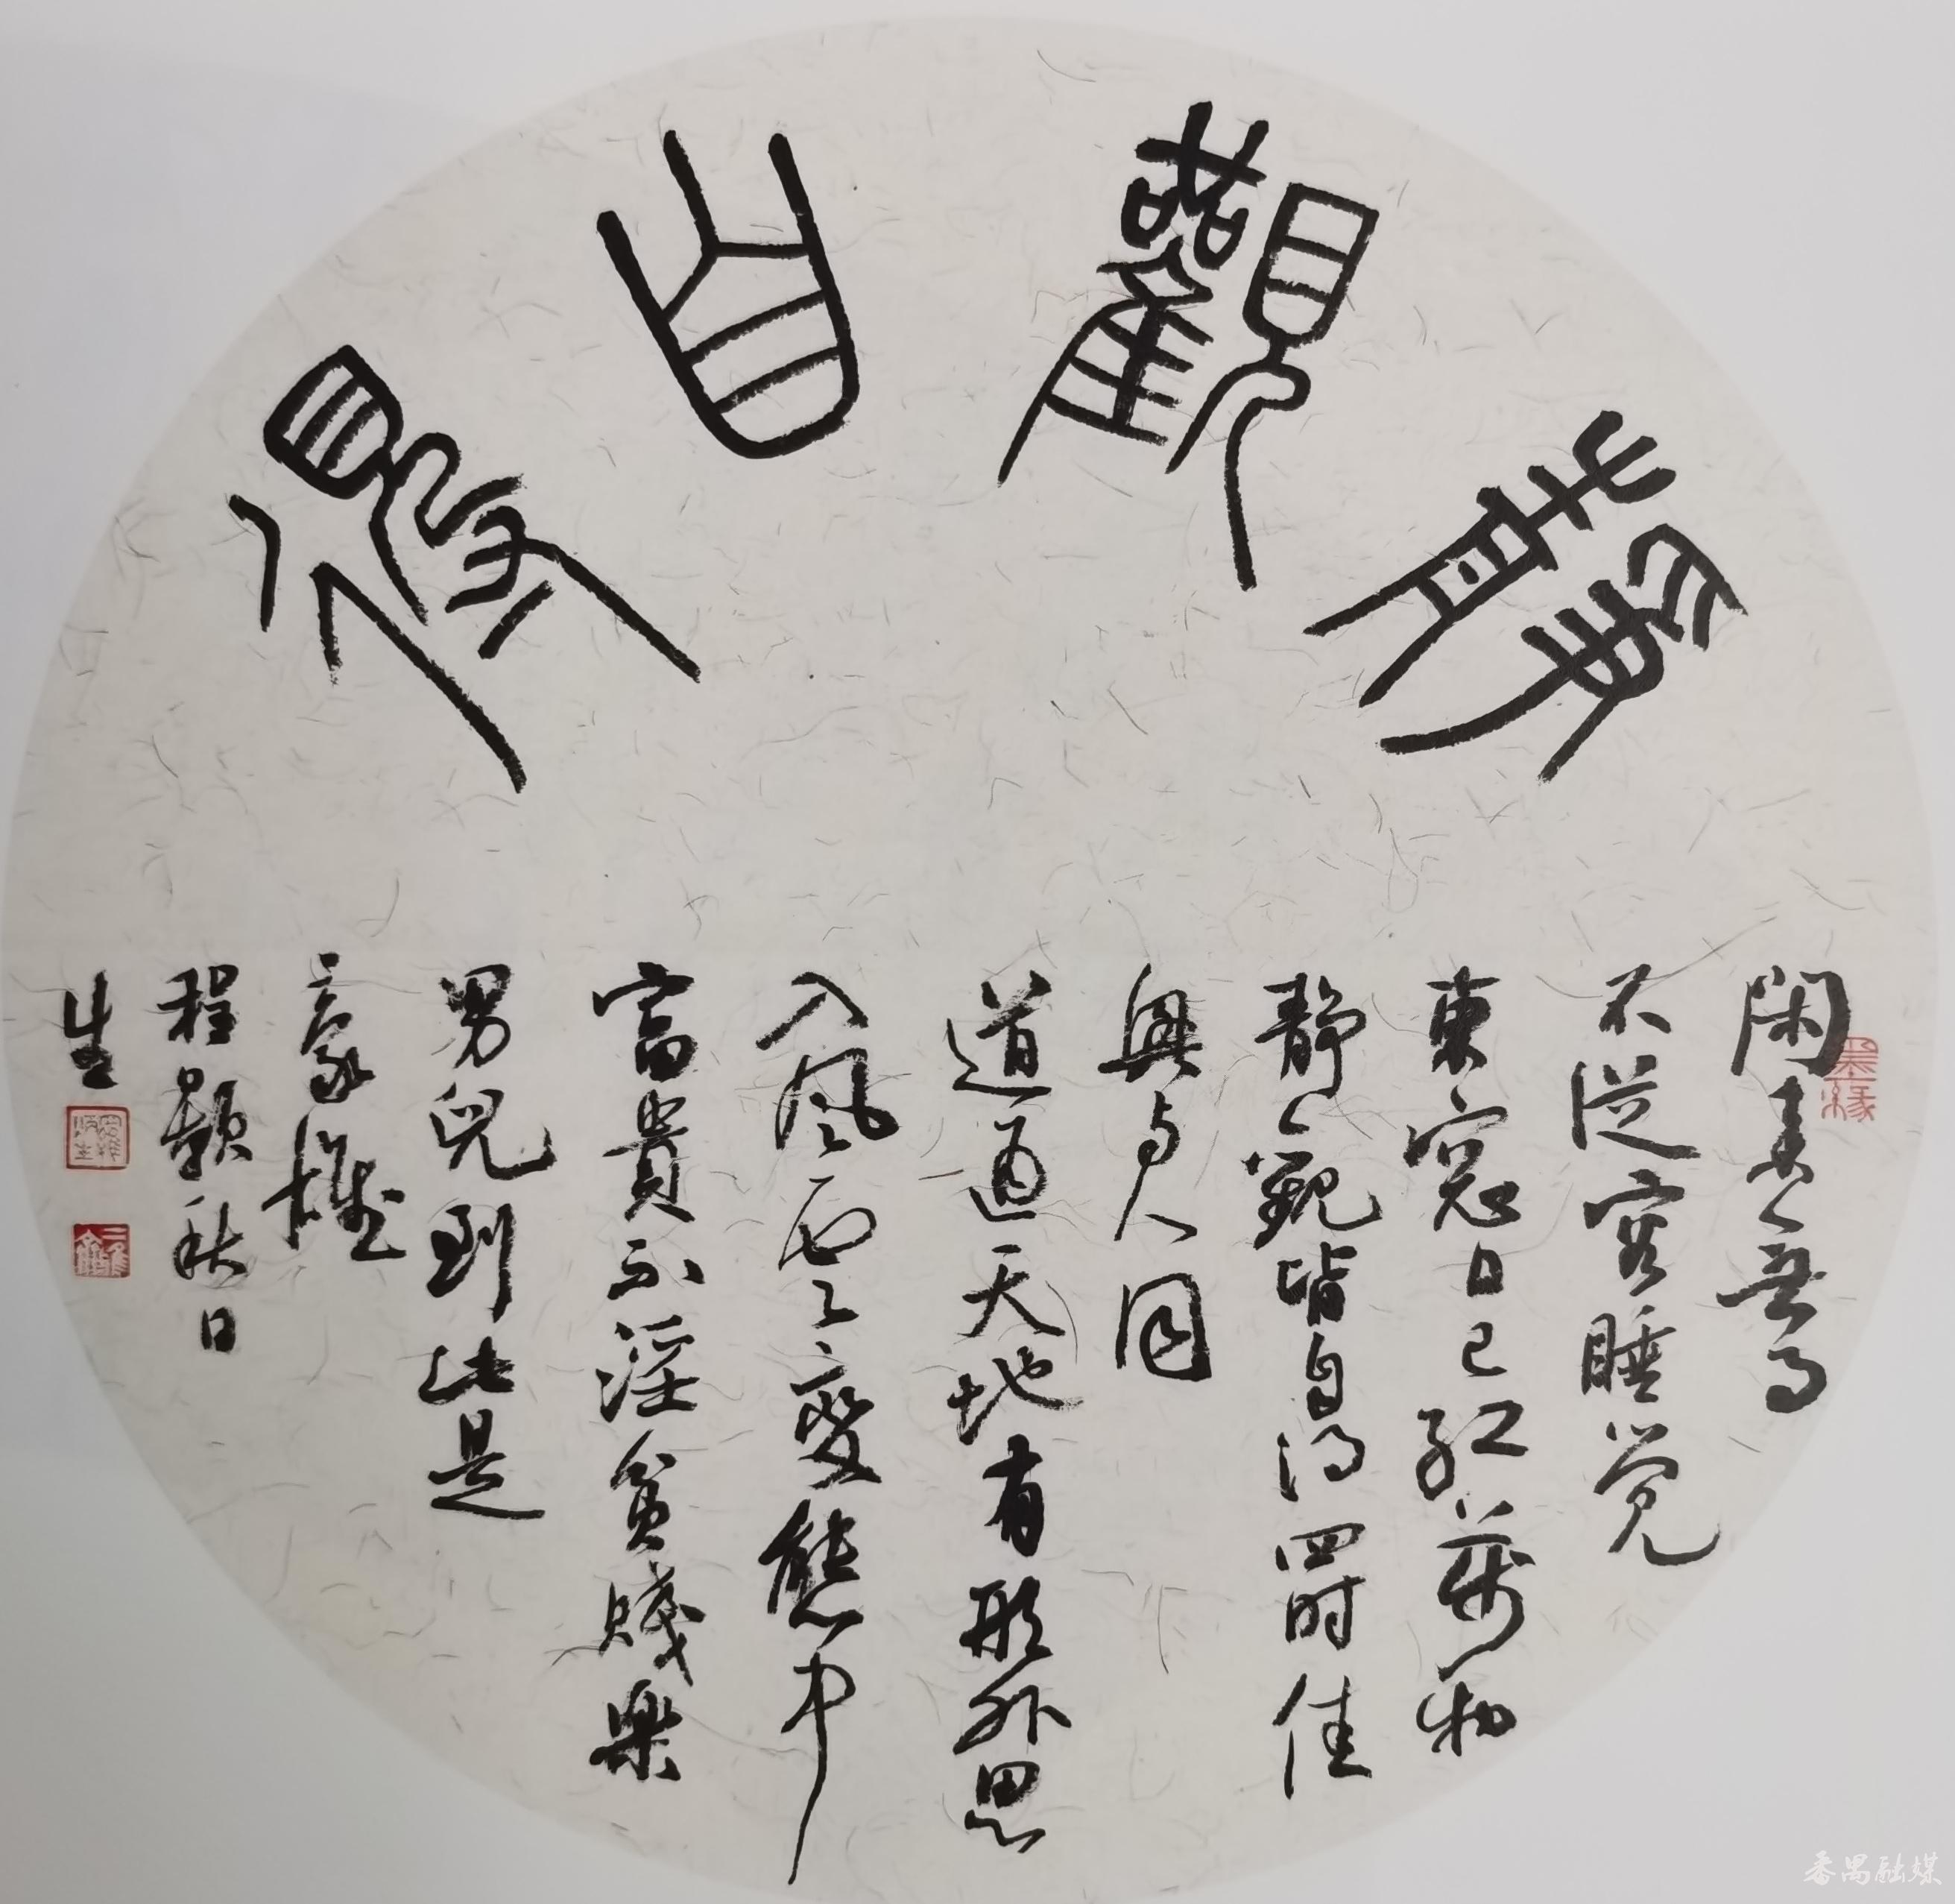 靜觀自得
閑來無事
不從容睡覺
東窓日已紅萬物
靜觀皆自得四時佳
興與人同
道通天地有形外思
入風雲變態中
富貴不淫貧賤樂
男兒到此是
豪雄
程顥秋日
生
墨緣
番禺融媒